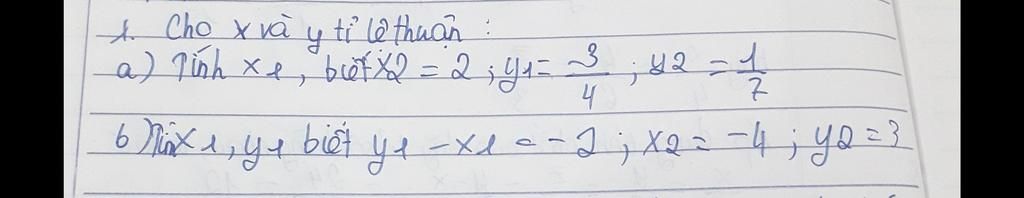 1. Cho x và y tỉ lệ thuận :
a) Tính x1, biết x2 = 2 ; y1 = -3/4 ; y2 = 1/7
b) Tính x1, y1 biết y1 - x1 = -2 ; x2 = -4 ; y2 = 3